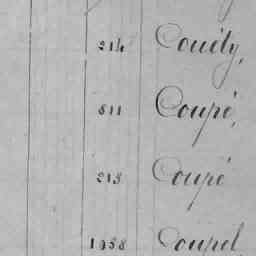 214 Couëty,
811 Coupé,
213 Coupé
1038 Coupel